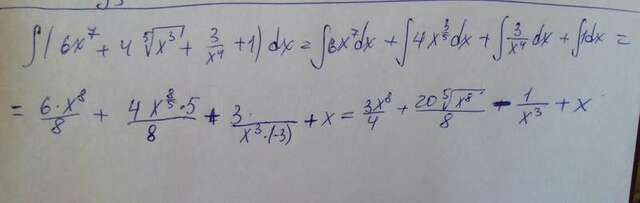 ∫(6x⁷ + 4 ⁵√x³ + 3/x⁴ + 1) dx = ∫6x⁷dx + ∫4x^(3/5)dx + ∫3/x⁴ dx + ∫1dx =
= 6·x⁸/8 + 4x^(8/5)·5/8 + 3·/x³·(-3) + x = 3x⁸/4 + 20 ⁵√x⁸/8 - 1/x³ + x